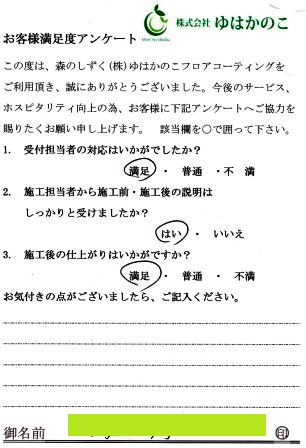 株式会社 ゆはかのこ
お客様満足度アンケート
この度は、森のしずく(株)ゆはかのこフロアコーティングを
ご利用頂き、誠にありがとうございました。今後のサービス、
ホスピタリティ向上の為、お客様に下記アンケートへご協力を
賜りたくお願い申し上げます。 該当欄を○で囲って下さい。
1. 受付担当者の対応はいかがでしたか?
満足 ・ 普通 ・不 満
2. 施工担当者から施工前・施工後の説明は
しっかりと受けましたか?
はい ・ いいえ
3. 施工後の仕上がりはいかがですか?
満足 ・ 普通 ・ 不満
お気付きの点がございましたら、ご記入ください。
御名前 印